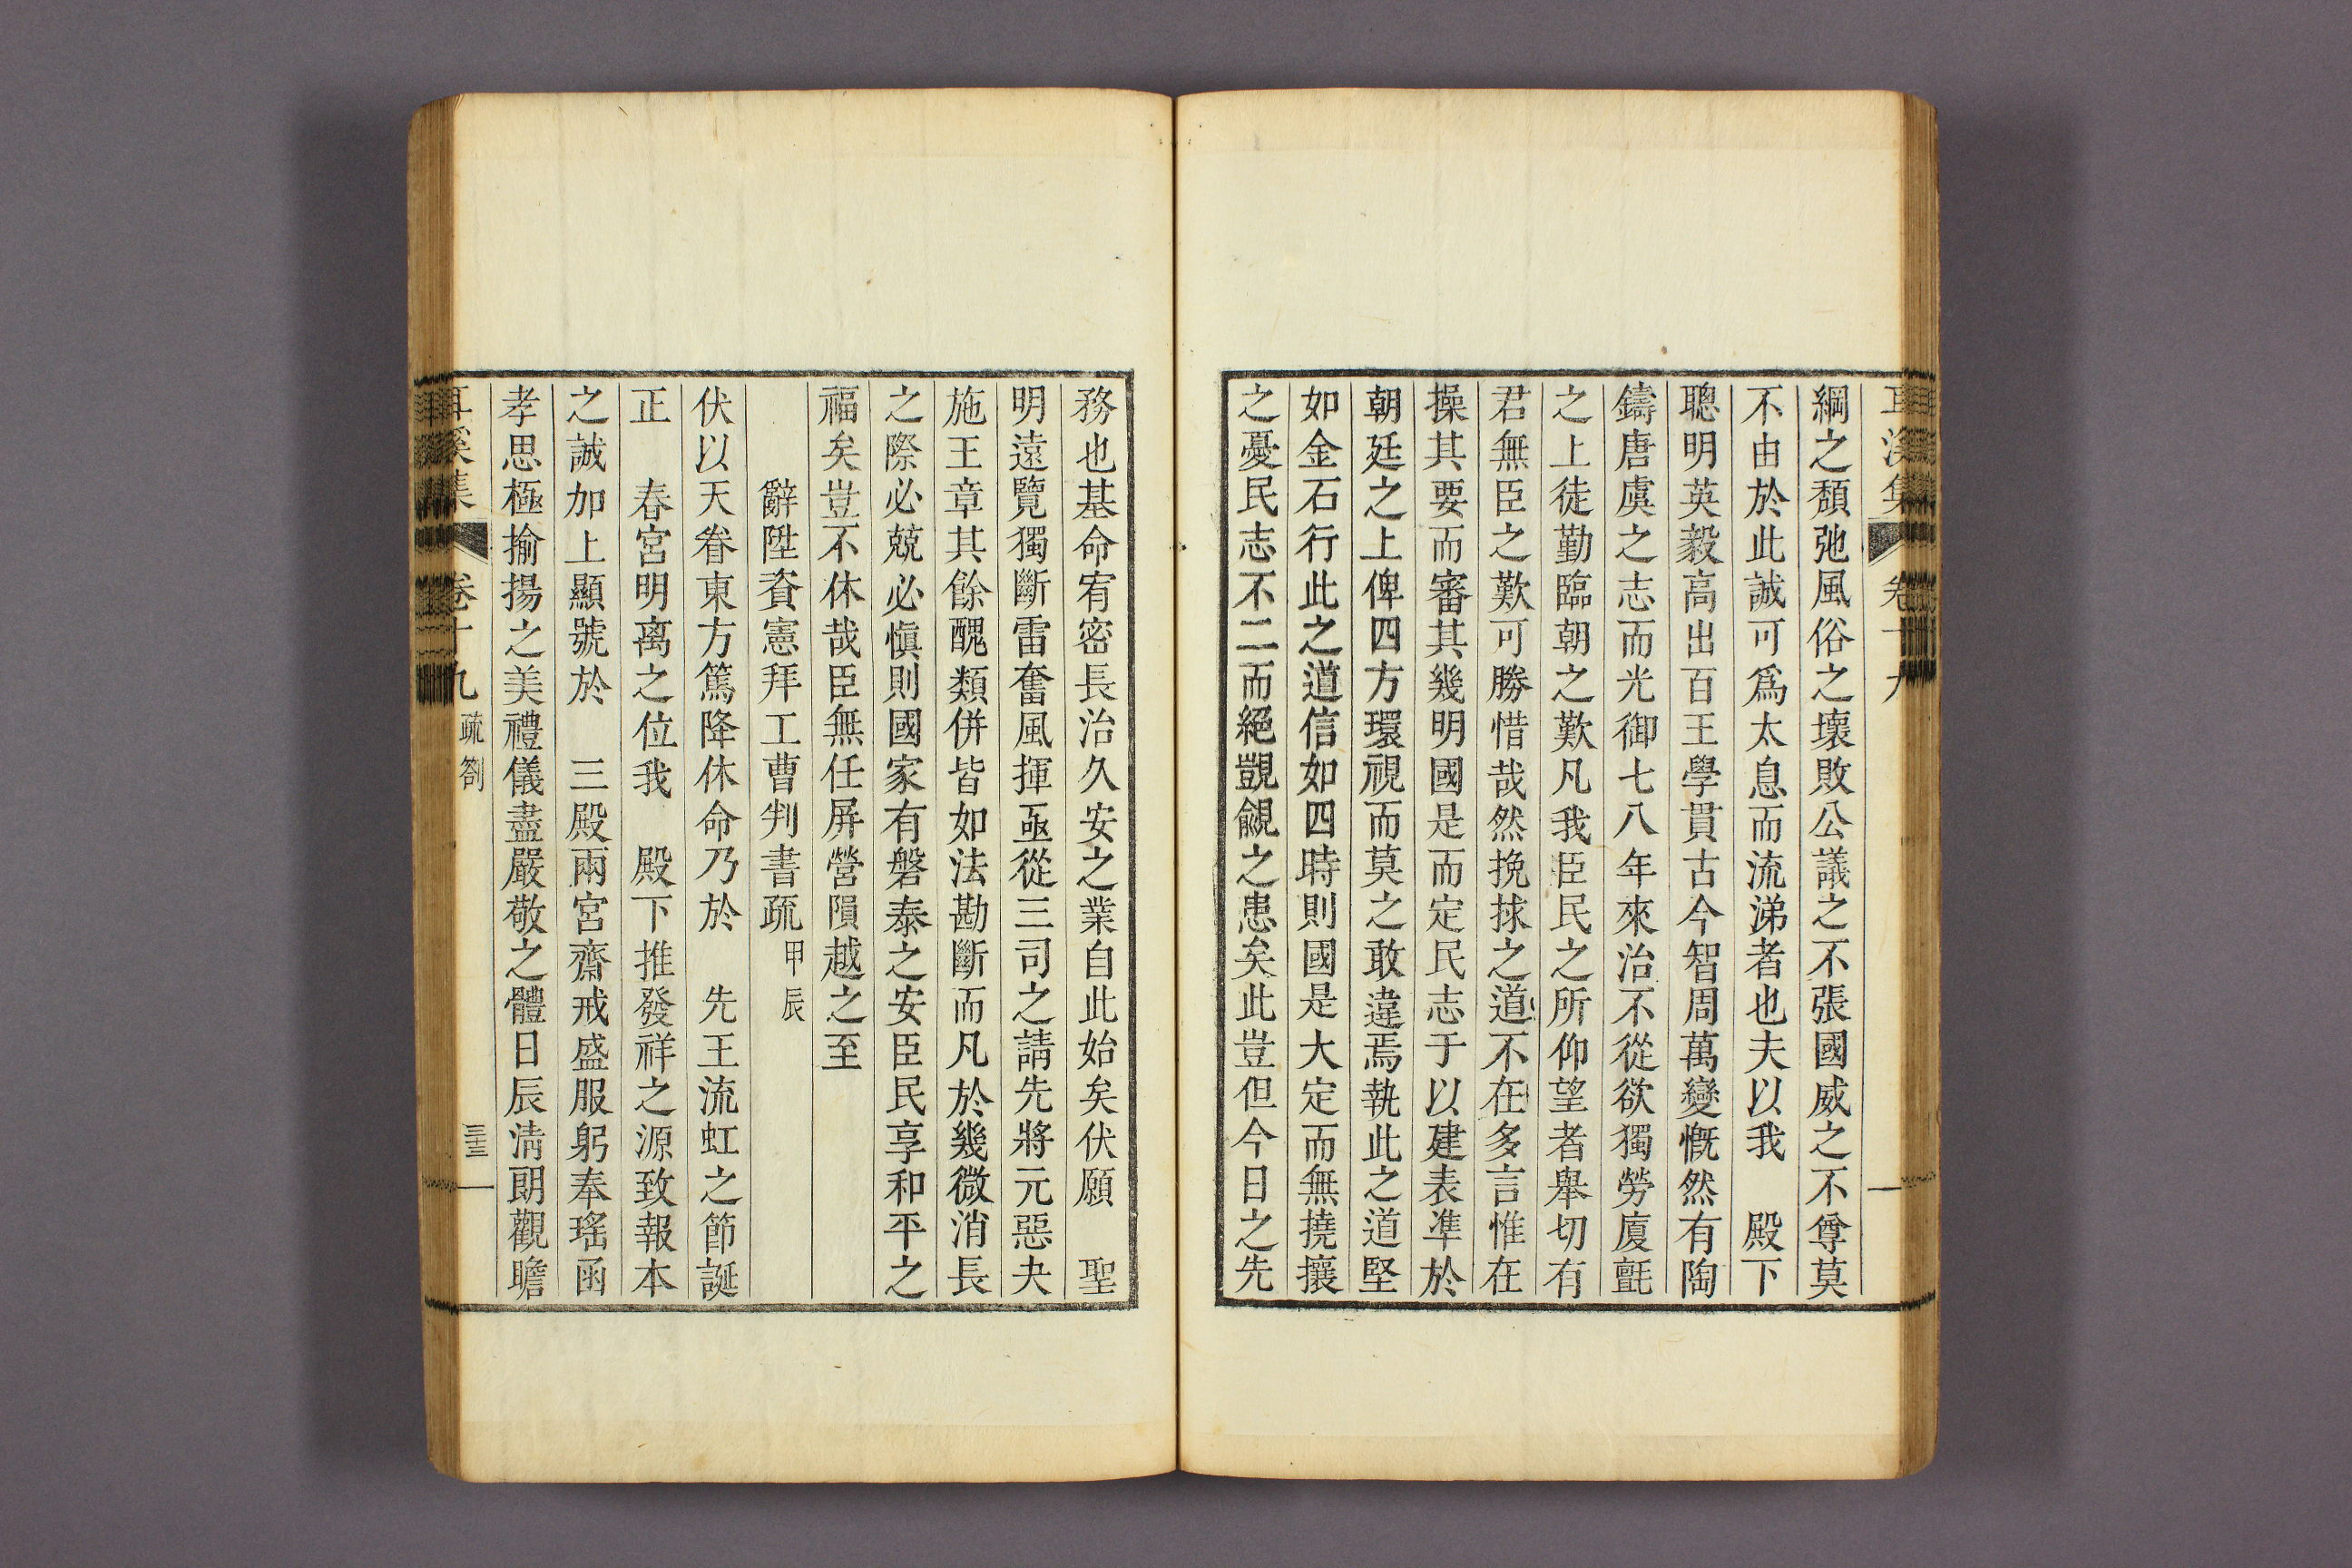 耳溪集 卷十九
綱之頹弛風俗之壞敗公議之不張國威之不尊莫
不由於此誠可爲太息而流涕者也夫以我 殿下
聰明英毅高出百王學貫古今智周萬變慨然有陶
鑄唐虞之志而光御七八年來治不從欲獨勞廈氈
之上徒勤臨朝之歎凡我臣民之所仰望者舉切有
君無臣之歎可勝惜哉然挽捄之道不在多言惟在
操其要而審其幾明國是而定民志于以建表準於
朝廷之上俾四方環視而莫之敢違焉執此之道堅
如金石行此之道信如四時則國是大定而無撓攘
之憂民志不二而絕覬覦之患矣此豈但今日之先
務也基命宥密長治久安之業自此始矣伏願 聖
明遠覽獨斷雷奮風揮亟從三司之請先將元惡夬
施王章其餘醜類併皆如法勘斷而凡於幾微消長
之際必兢必愼則國家有磐泰之安臣民享和平之
福矣豈不休哉臣無任屏營隕越之至
辭陞資憲拜工曹判書疏 甲辰
伏以天眷東方篤降休命乃於 先王流虹之節誕
正 春宮明离之位我 殿下推發祥之源致報本
之誠加上顯號於 三殿兩宮齋戒盛服躬奉瑤函
孝思極揄揚之美禮儀盡嚴敬之體日辰淸朗觀瞻
耳溪集 卷十九 疏劄 三十三